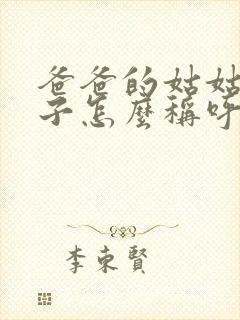 爸爸的姑姑
子怎麼稱呼
李東賢